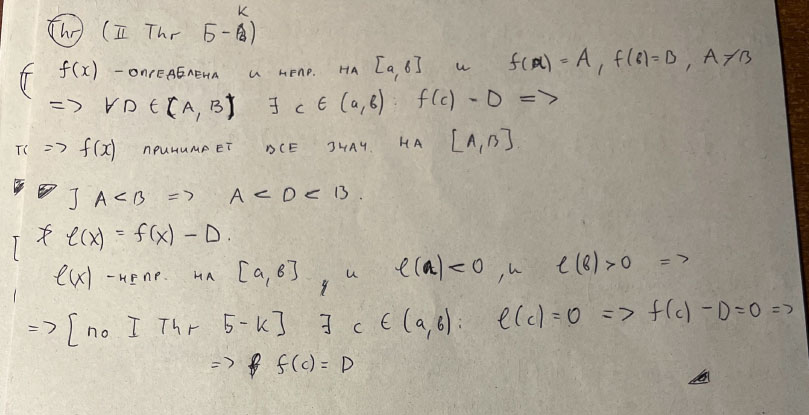 Thr (II Thr Б-К)
f(x) - определена и непр. на [a,b] и f(a) = A, f(b) = B, A ≠ B
=> ∀ D ∈ [A, B] ∃ c ∈ (a,b): f(c) - D =>
=> f(x) принимает все знач. на [A,B].
] A < B => A < D < B.
l(x) = f(x) - D.
l(x) - непр. на [a,b], и l(a) < 0, и l(b) > 0 =>
=> [по I Thr Б-К] ∃ c ∈ (a,b): l(c) = 0 => f(c) - D = 0 =>
=> f(c) = D